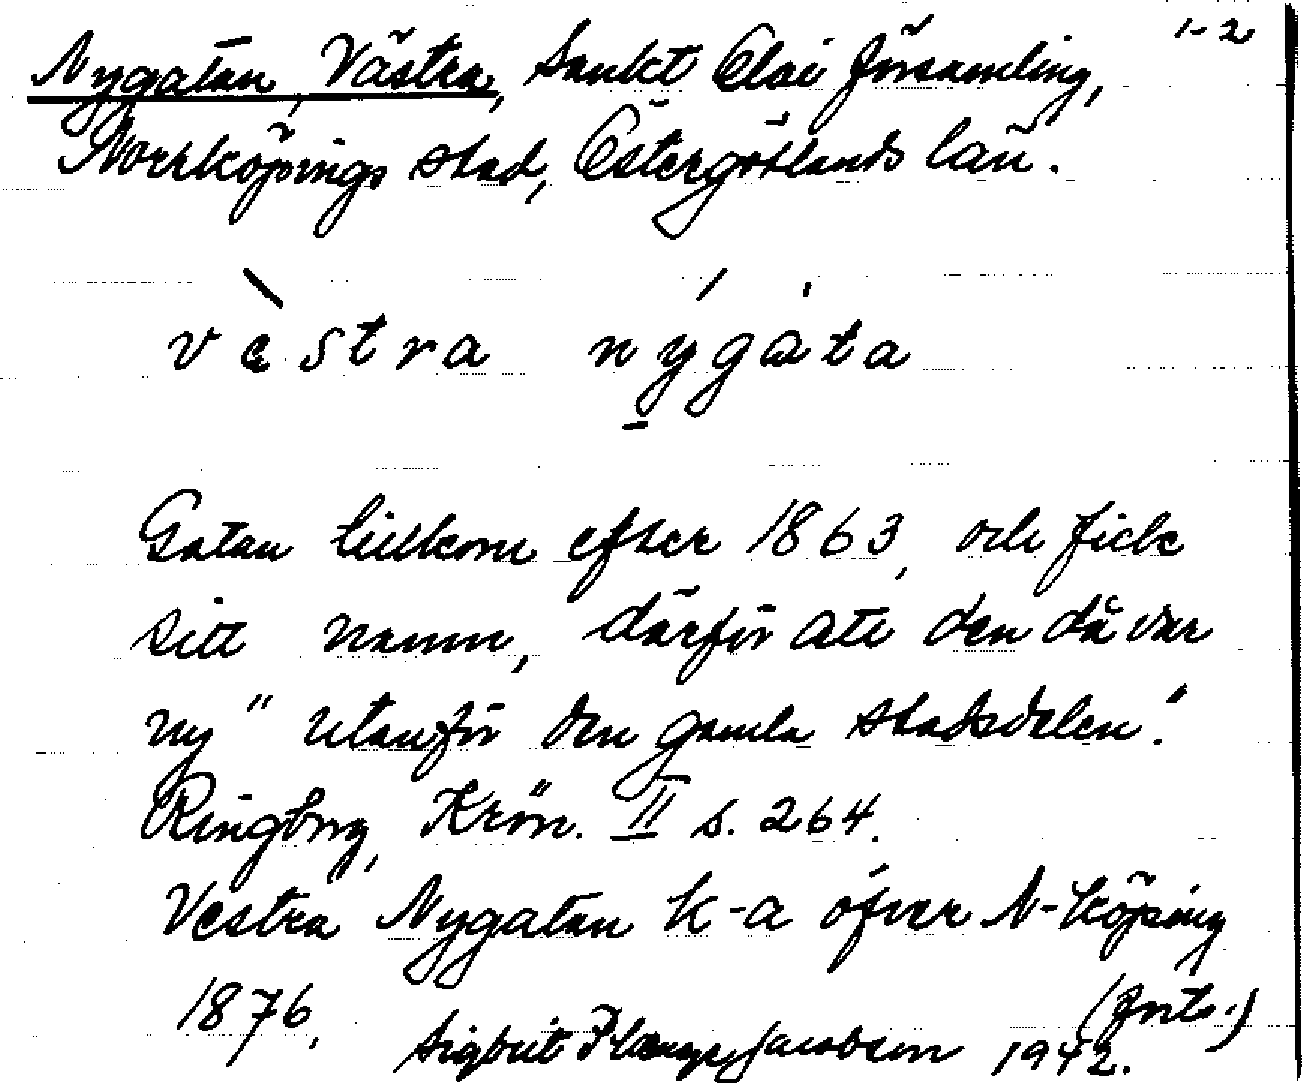 1-2
Nygatan, Västra, Sankt Olai församling,
Norrköpings stad, Östergötlands län.
vèstra nýgàta
Gatan tillkom efter 1863, och fick
sitt namn, därför att den då var
ny "utanför den gamla stadsdelen".
Ringborg, Krön. II s. 264.
Vestra Nygatan k-a öfver N-köping
1876. (forts.)
Sigbrit Plænge Jacobson 1942.